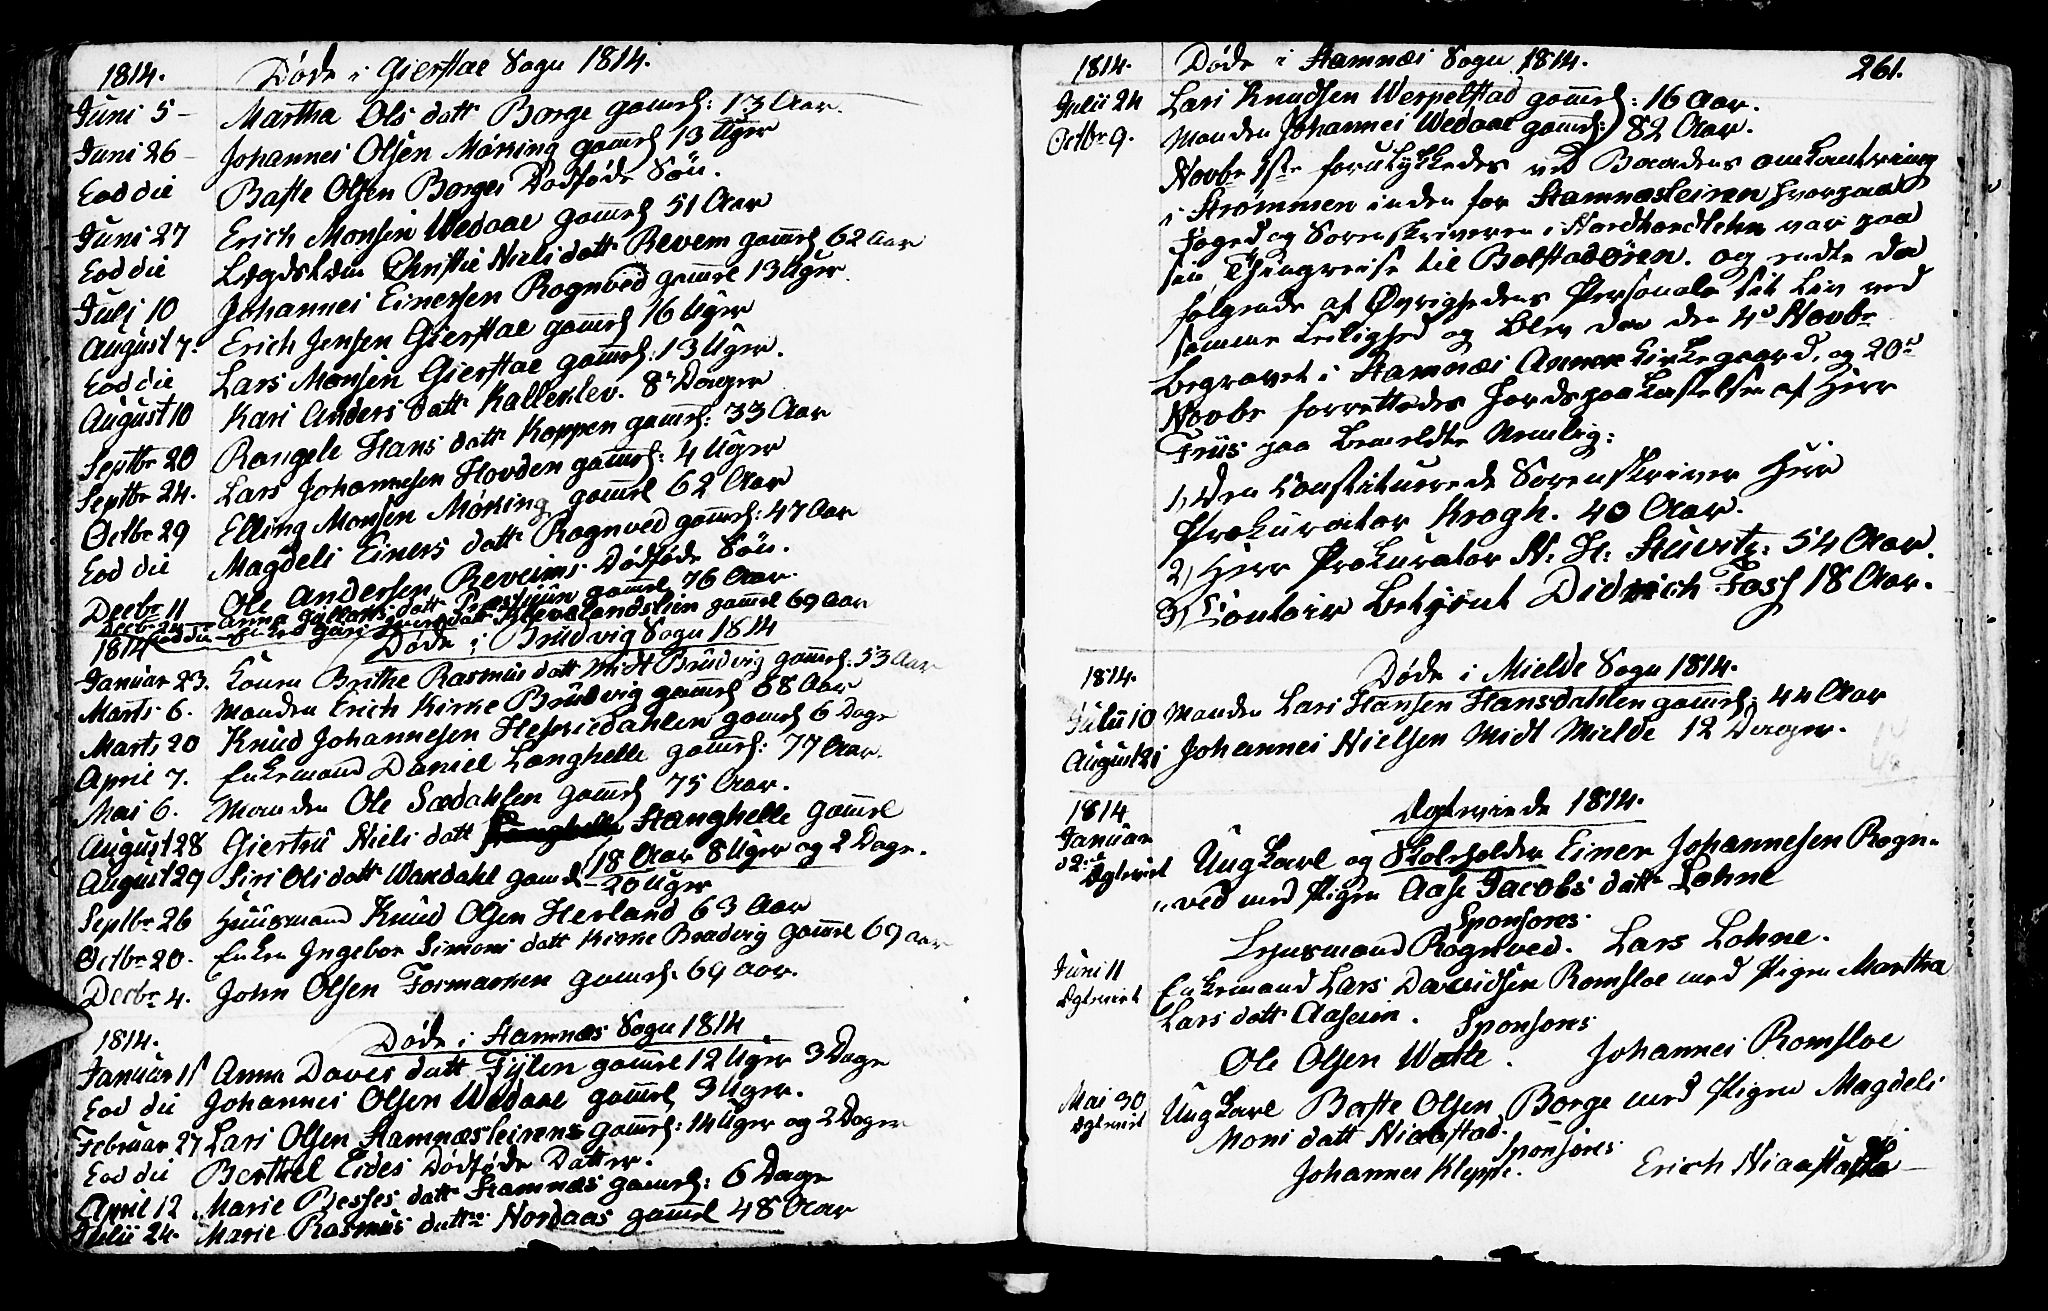 1814. Døde i Gierstae Sogn 1814.
Juni 5 – Martha Ols datt Borge gamel: 13 Aar.
Juni 26 – Johannes Olsen Møssing gamel 13 Uger
Eod die Baste Olsen Borges Dødføde Søn.
Juni 27 Erich Monsen Wedaae gamel 51 Aar
Eod die Lægdslem Christie Niels datt Revem gamel 62 Aar
Julj 10 Johannes Einersen Rognved gamel 13 Uger.
August 7. Erich Jensen Gierstae gamel 16 Uger
Eod die Lars Monsen Gierstae gamel: 13 Uger.
August 10 Kari Anders datt Kalleklev. 8 Dager
Septbr 20 Rangele Hans datt Koppen gamel: 33 Aar
Septbr 24. Lars Johannesen Hovden gamel: 4 Uger
Octbr 29 Elling Monsen Møssing gamel 62 Aar
Eod die Magdeli Einers datt Rognved gamel: 47 Aar
Decbr 11 Ole Andersen Reveims Dødføde Søn.
Decbr 24 Anna datt gamel 76 Aar.
Eod die datt gamel 69 Aar
1814 Døde i Brudvig Sogn 1814
Januar 23. Konen Brithe Rasmus datt Midt Brudvig gamel: 53 Aar
Marts 6. Manden Erich Kirke Brudvig gamel 68 Aar
Marts 20 Knud Johannesen Hesjedahlen gamel 6 Dage
April 7. Enkemand Daniel Langhelle gamel: 77 Aar.
Mai 6. Manden Ole Sædahlen gamel 75 Aar.
August 28 Giertru Niels datt Stanghelle gamel
18 Aar 8 Uger og 2 Dage.
August 29 Siri Ols datt Waxdahl gamel 20 Uger
Septbr 26 Huusmand Knud Olsen Herland 63 Aar
Octbr 20. Enken Ingebor Simons datt Kirke Brudvig gamel 69 aar
Decbr 4. John Olsen Formanen gamel. 69 aar.
1814. Døde i Stamnæs Sogn 1814
Januar 11 Anna Daves datt Fylen gamel 12 Uger 3 Dage
Eod die Johannes Olsen Wedaae gamel 3 Uger.
Februar 27 Lars Olsen Stamnæsleirens gamel: 14 Uger og 2 Dager
Eod die Berthel Eides Dødføde Datter.
April 12 Marie datt Stamnæs gamel: 6 Dage
Julii 24. Marie Rasmus datter Nordaas gamel 48 Aar
1814. Døde i Stamnæs Sogn 1814. 261.
Julii 24 Lars Knudsen Werpelstad gamel: 16 Aar.
Octbr 9. Manden Johannes Wedaae gamel: 82 Aar.
Novbr 1ste forulykkedes ved Baadens omkantring
i Strømmen inden for Stamnæsleiren hvorpaa
Foged og Sorenskriveren i Nordhordlehn var paa
sin Thingreise til Bolstadøren. og endte da
følgende af Øvrighedens Personale sit Liv ved
samme Leilighed og blev da den 4d Novbr
begravet i Stamnæs Annex kirkegaard, og 20d
Novbr forrettedes Jordspaakastelse af Herr
Friis paa bemeldte Nemlig:
1, Den Constituerede Sorenskriver Herr
Prokurator Krogh. 40 Aar.
2, Herr Prokurator N: H: Stuvitz: 54 Aar.
3, Contoir betjent Didrich Foss 18 Aar.
1814. Døde i Mielde Sogn 1814.
Julii 10 Manden Lars Hansen Hansdahlen gamel: 44 Aar
August 21 Johannes Nielsen Midt Mielde 12 Dager.
1814 Egteviede 1814.
Januar
d 2den
Egteviet Ungkarl og Skoleholder Einer Johannesen Rogn-
„ved med Pigen Aase Jacobs datt Lohne
Sponsores
Lensmand Rognved. Lars Lohne.
Juni 11
Egteviet Enkemand Lars Davidsen Romsloe med Pigen Martha
Lars datt Aaseim. Sponsores
Ole Olsen Watle. Johannes Romsloe
Mai 30
Egteviet Ungkarl Baste Olsen Borge med Pigen Magdeli
Mons datt Niaastad. Sponsores
Johannes Kleppe. Erich Niaastad